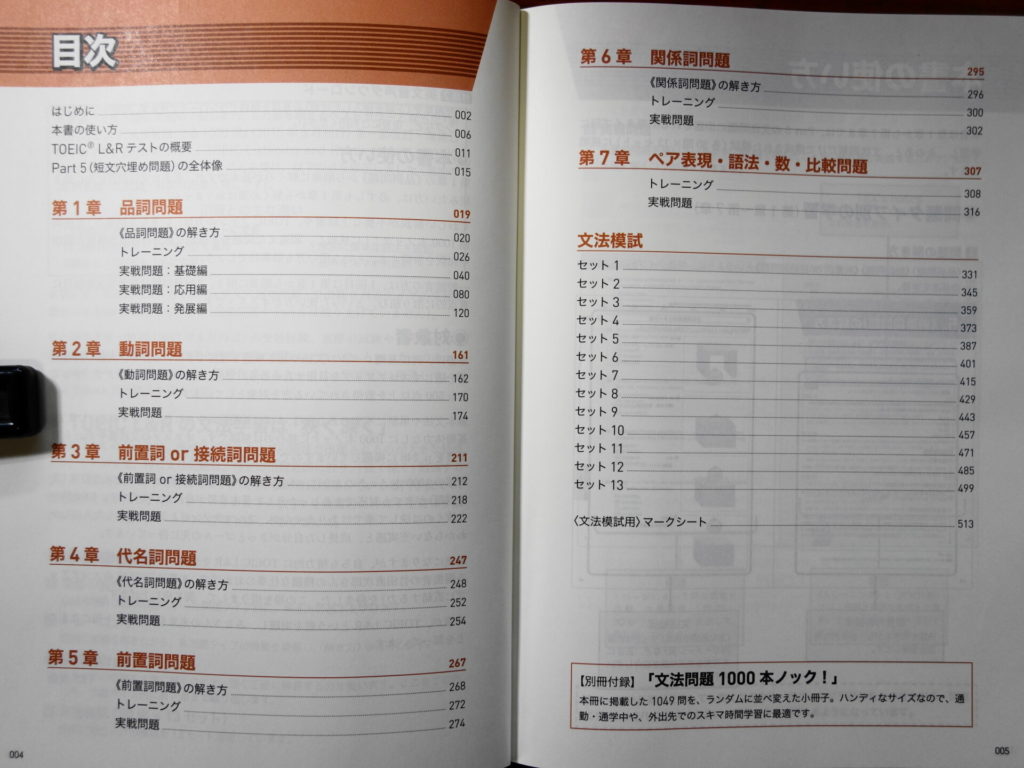 目次
はじめに 002
本書の使い方 006
TOEIC® L&R テストの概要 011
Part 5（短文穴埋め問題）の全体像 015
第1章 品詞問題 019
《品詞問題》の解き方 020
トレーニング 026
実戦問題：基礎編 040
実戦問題：応用編 080
実戦問題：発展編 120
第2章 動詞問題 161
《動詞問題》の解き方 162
トレーニング 170
実戦問題 174
第3章 前置詞 or 接続詞問題 211
《前置詞 or 接続詞問題》の解き方 212
トレーニング 218
実戦問題 222
第4章 代名詞問題 247
《代名詞問題》の解き方 248
トレーニング 252
実戦問題 254
第5章 前置詞問題 267
《前置詞問題》の解き方 268
トレーニング 272
実戦問題 274
004
第6章 関係詞問題 295
《関係詞問題》の解き方 296
トレーニング 300
実戦問題 302
第7章 ペア表現・語法・数・比較問題 307
トレーニング 308
実戦問題 316
文法模試
セット1 331
セット2 345
セット3 359
セット4 373
セット5 387
セット6 401
セット7 415
セット8 429
セット9 443
セット10 457
セット11 471
セット12 485
セット13 499
〈文法模試用〉マークシート 513
【別冊付録】「文法問題1000本ノック！」
本冊に掲載した1049問を、ランダムに並べ変えた小冊子。ハンディなサイズなので、通
勤・通学中や、外出先でのスキマ時間学習に最適です。
005